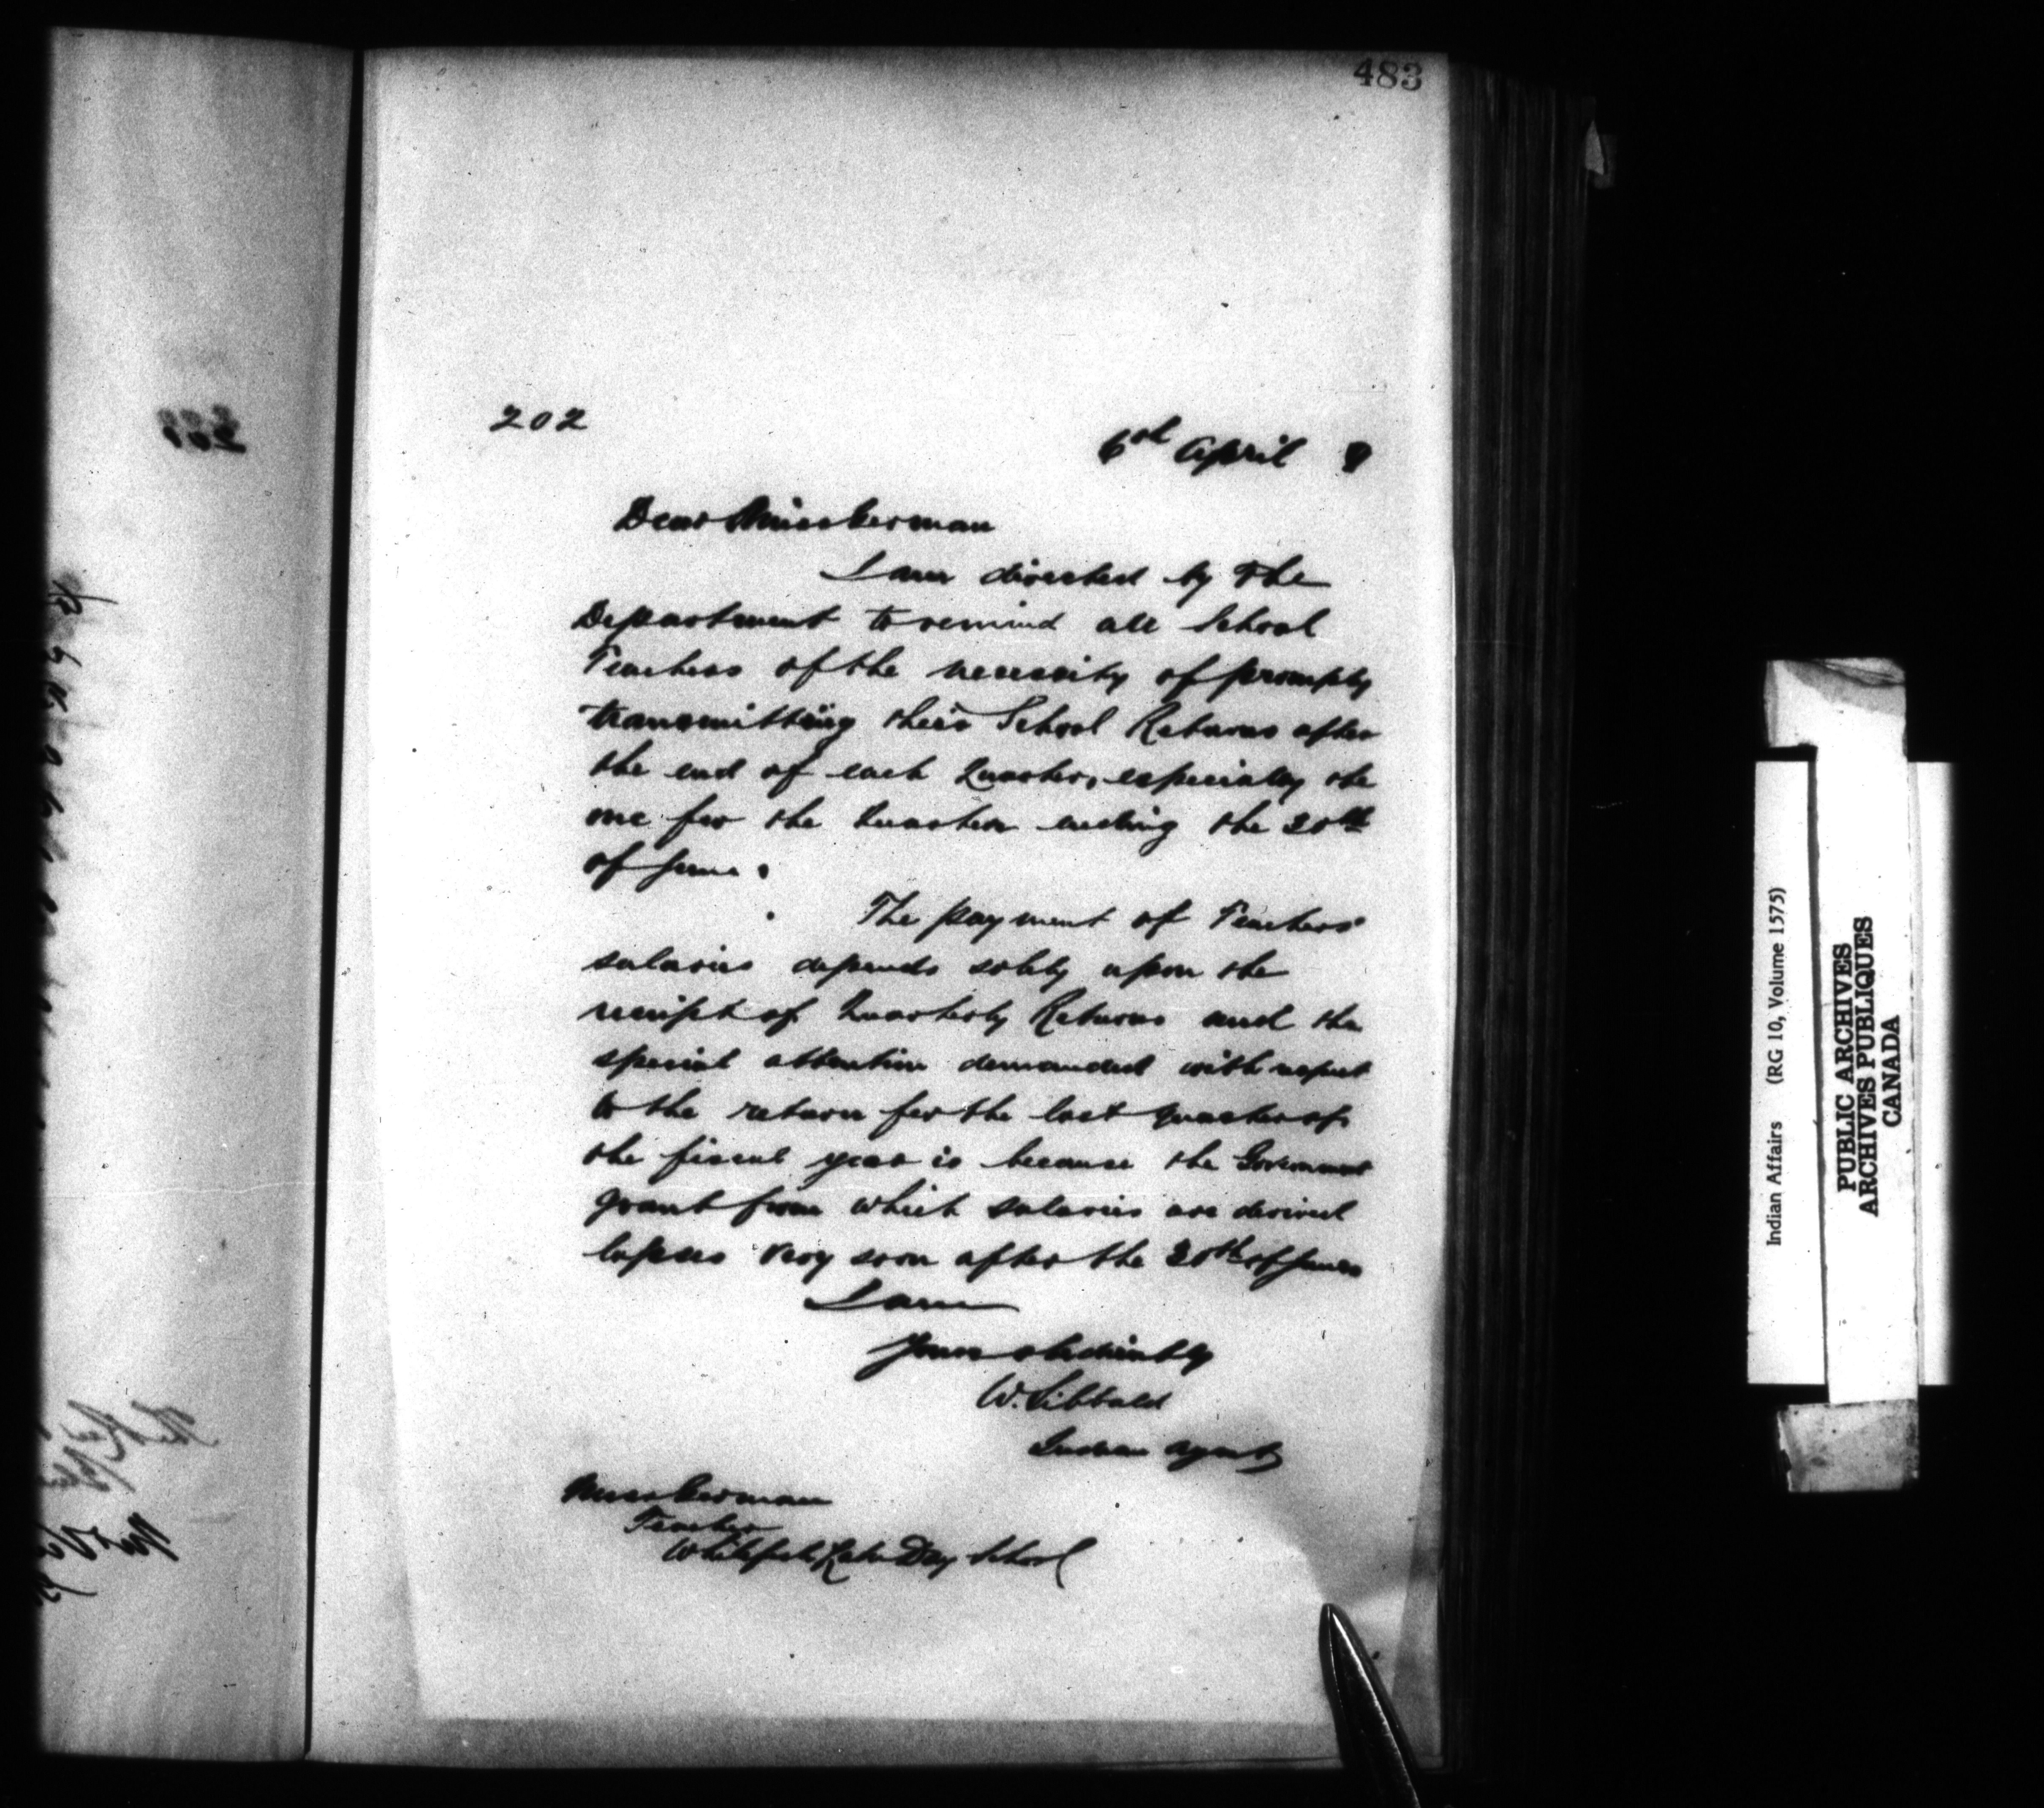 483
202
6th April 8
Dear Miss German
I am directed by the
Department to remind all School
Teachers of the necessity of promptly
transmitting their School Returns after
the end of each Quarter, especially the
one for the Quarter ending the 30th
of June.
The payment of Teachers'
salaries depends solely upon the
receipt of Quarterly Returns and the
special attention demanded with respect
to the return for the last quarter of
the fiscal year is because the Government
grant from which salaries are derived
lapses very soon after the 30th of June
I am
Yours obediently
W. Sibbald
Indian Agent
Miss German
Teacher
Whitefish Lake Day School
Indian Affairs (RG 10, Volume 1575)
PUBLIC ARCHIVES
ARCHIVES PUBLIQUES
CANADA